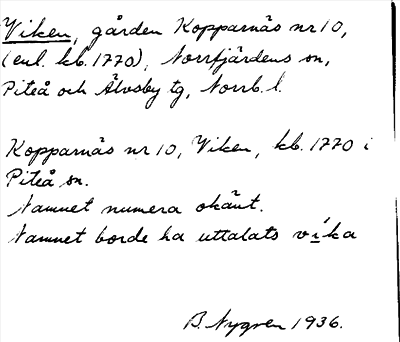 Viken, gården Kopparnäs nr 10,
(enl. kb. 1770), Norrfjärdens sn,
Piteå och Älvsby tg, Norrb. l.
Kopparnäs nr 10, Viken, kb. 1770 i
Piteå sn.
Namnet numera okänt.
Namnet borde ha uttalats víka
B. Nygren 1936.